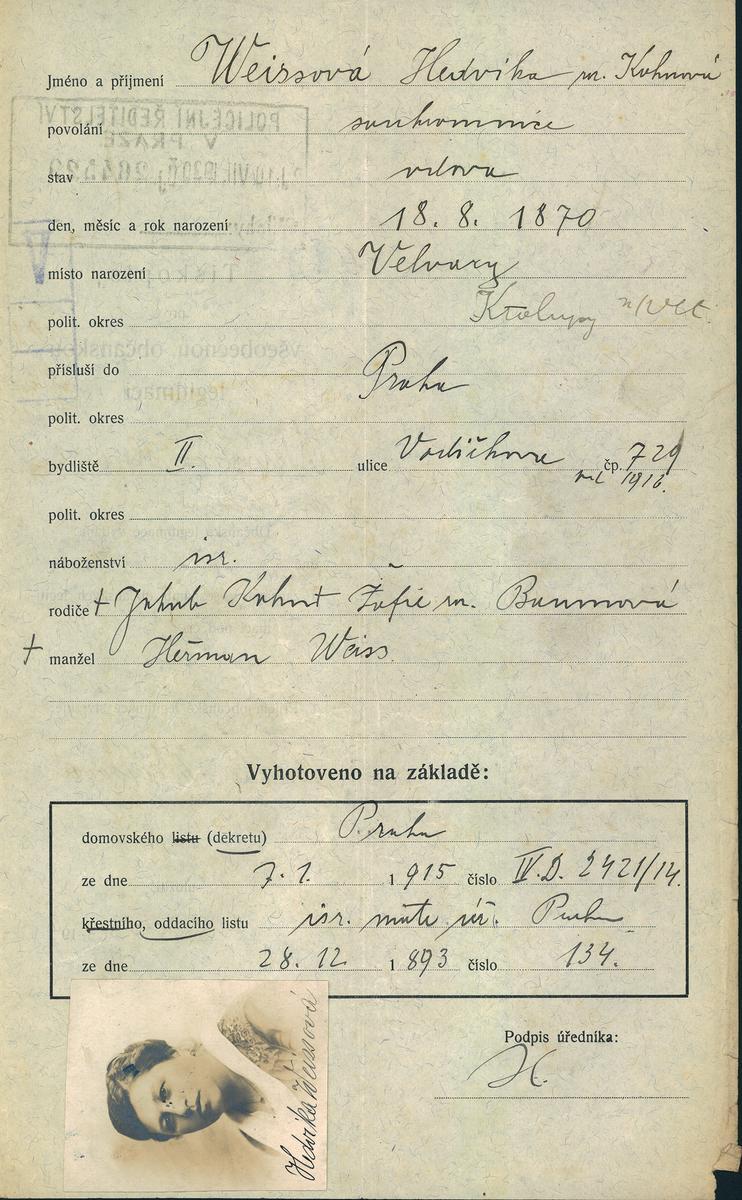 Jméno a příjmení Weissová Hedvika roz. Kohnová
povolání soukromnice
stav vdova
den, měsíc a rok narození 18. 8. 1870
místo narození Velvary
polit. okres Kralupy n/Vlt.
přísluší do Praha
polit. okres
bydliště II. ulice Vodičkova čp. 729
1916.
polit. okres
náboženství isr.
rodiče † Jakub Kohn Žofie roz. Baumová
† manžel Heřman Weiss
Vyhotoveno na základě:
domovského listu (dekretu) Praha
ze dne 7. 1. 1915 číslo IV.D. 2421/14.
křestního, oddacího listu isr. mat. úř. Praha
ze dne 28. 12. 1893 číslo 134.
Podpis úředníka:
Hedvika Weissová
POLICEJNÍ ŘEDITELSTVÍ
V PRAZE
Tiskopis
pro
všeobecnou občanskou
legitimaci